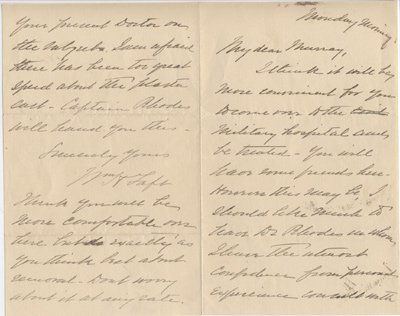 Monday Morning
My dear Murray,
I think it will be
more convenient for you
to come over to the
Military hospital and
be treated - You will
have some friends here.
However this may be, I
should like much to
have Dr Rhodes in whom
I have the utmost
confidence from personal
experience consult with
your present Doctor on
the subject. I am afraid
there has been too great
speed about the plaster
cast - Captain Rhodes
will hand you this -
Sincerely yours
Wm H Taft
I think you will be
more comfortable over
here but do exactly as
you think best about
removal - Dont worry
about it at any rate.